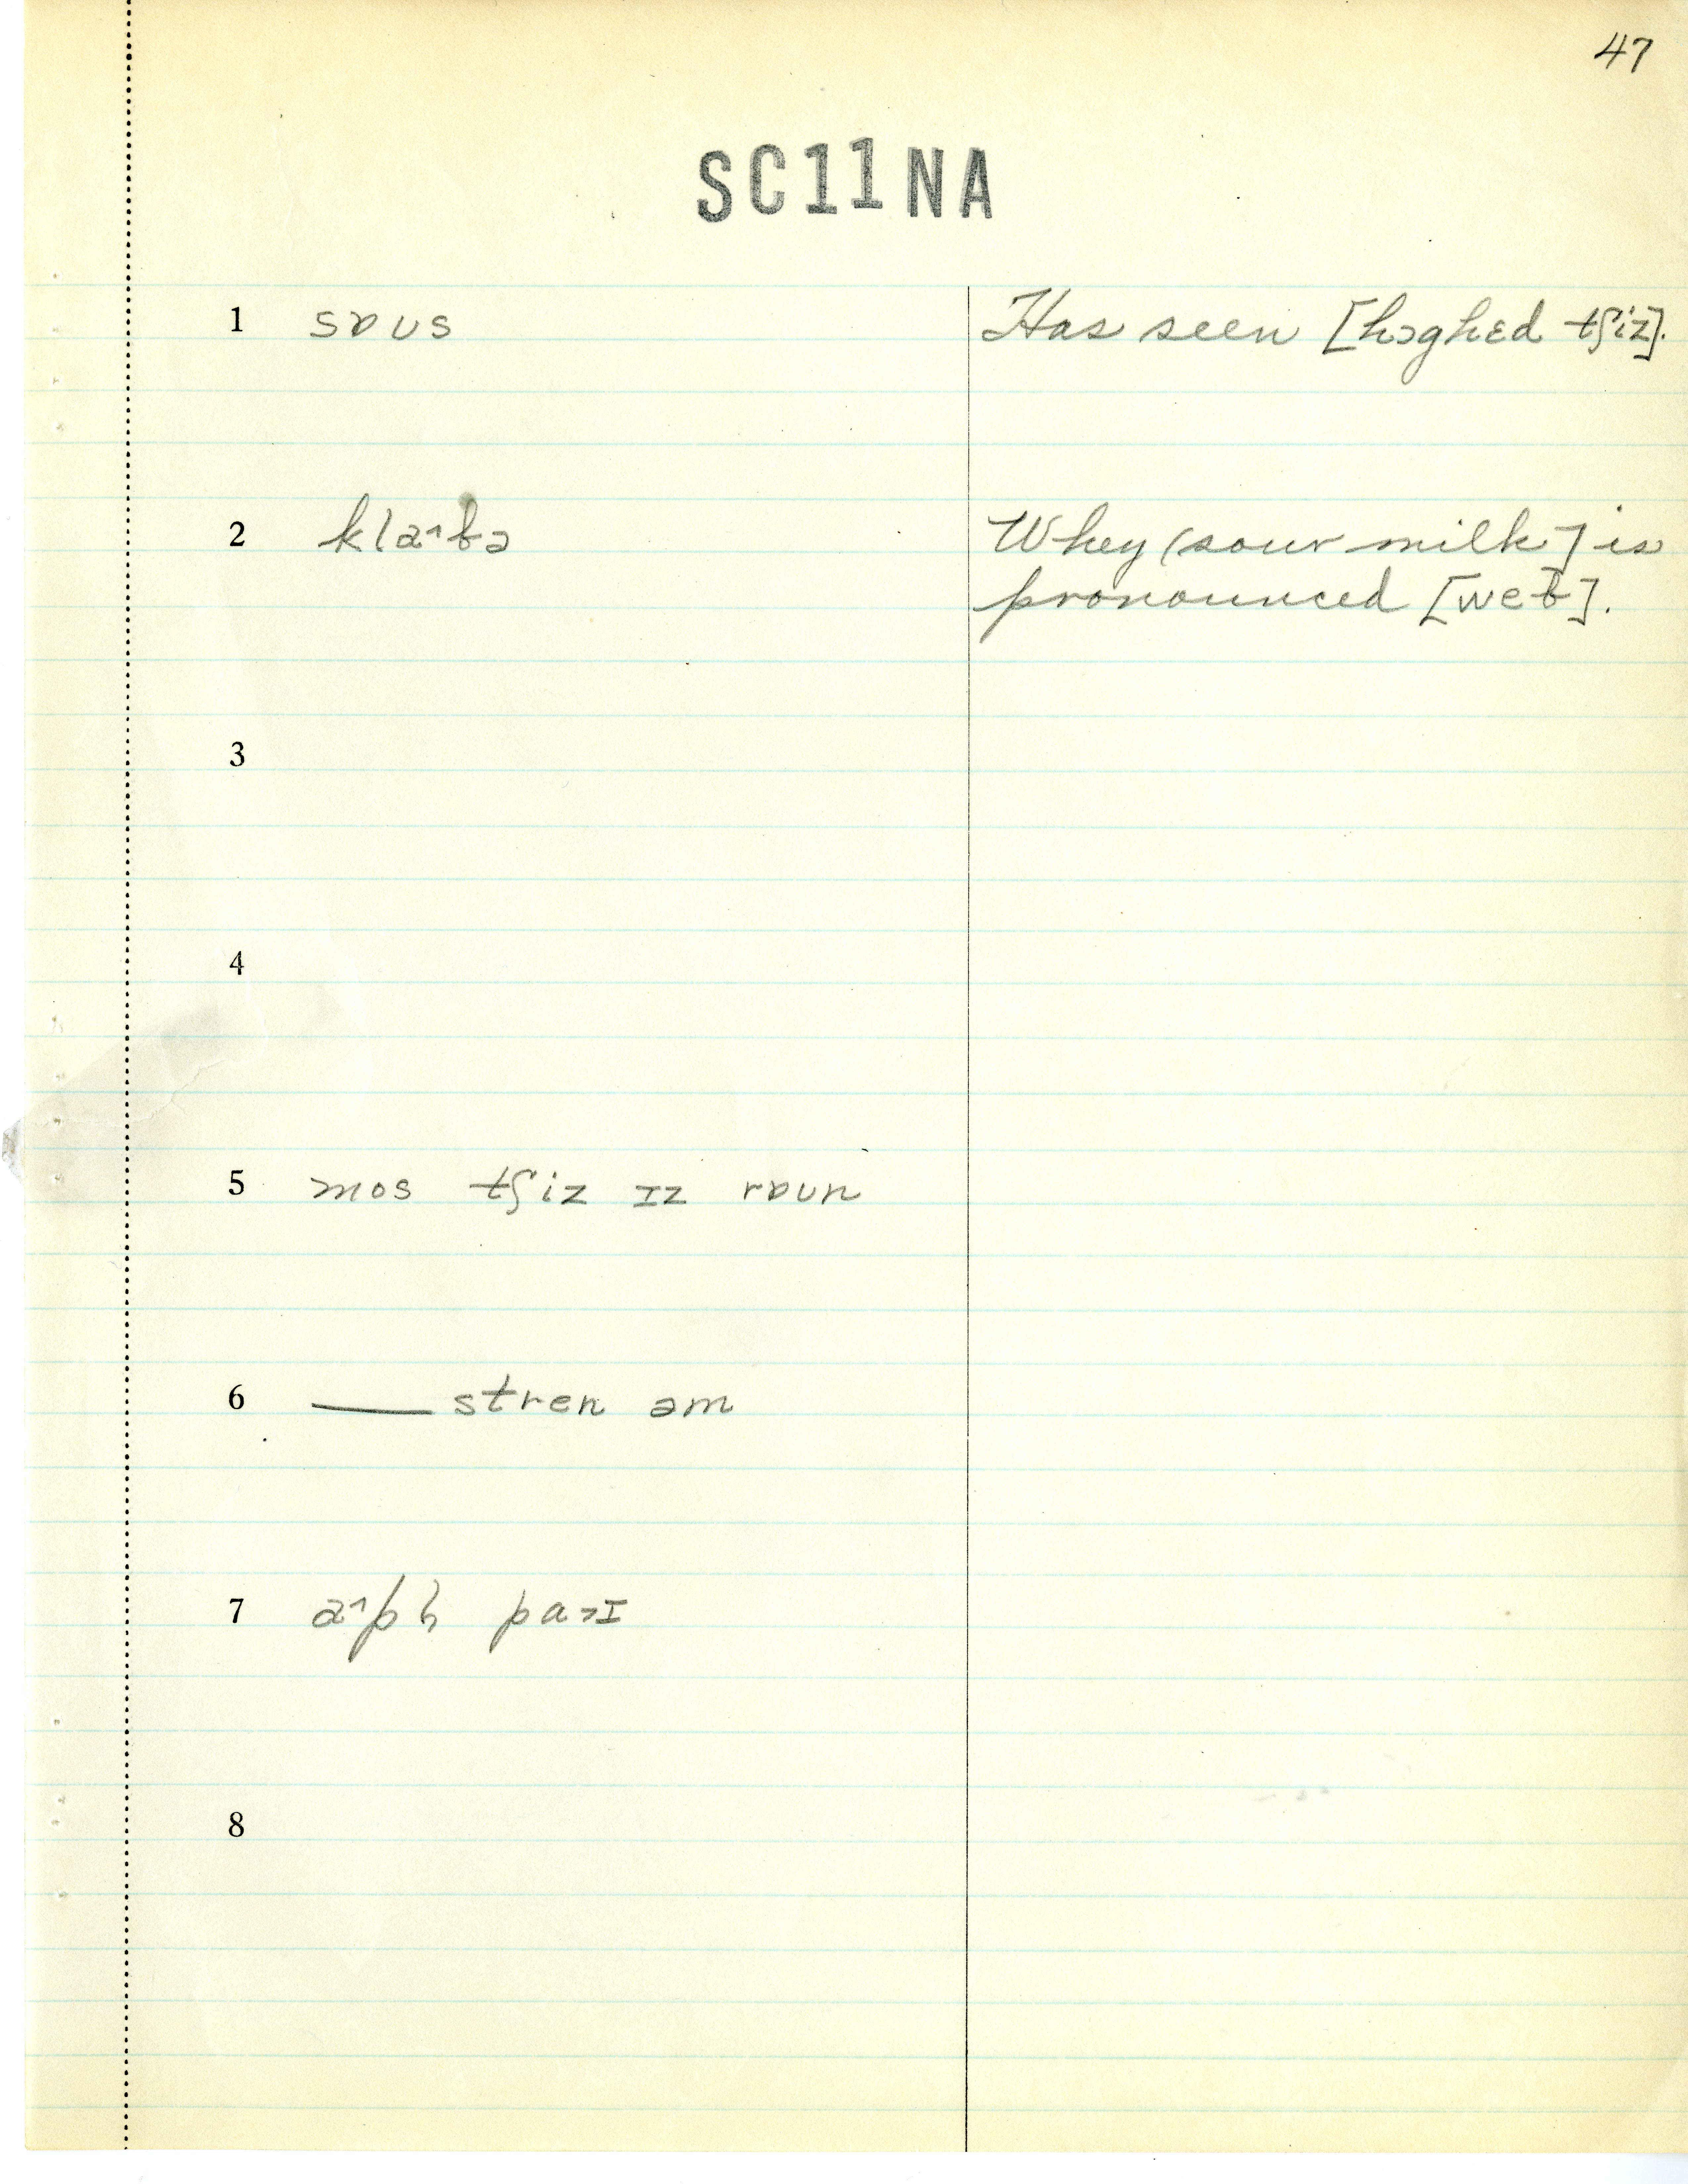 47
SC11NA
1 sɒus Has seen [hɔghɛd tʃiz].
2 klaˑbə Whey (sour milk] is
pronounced [weɪ].
3
4
5 mos tʃiz ɪz rɒun
6 —— stren əm
7 paɪ
8